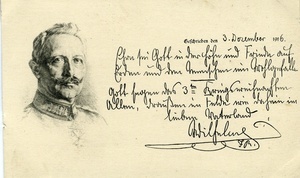 Geschrieben den 3. Dezember 1916.
Ehre sei Gott in der Höhe und Friede auf
Erden und den Menschen ein Wohlgefallen
Gott segne das 3te Kriegsweihnachten
Allen, draußen im Felde wie daheim im
lieben Vaterland!
Wilhelm
I.R.